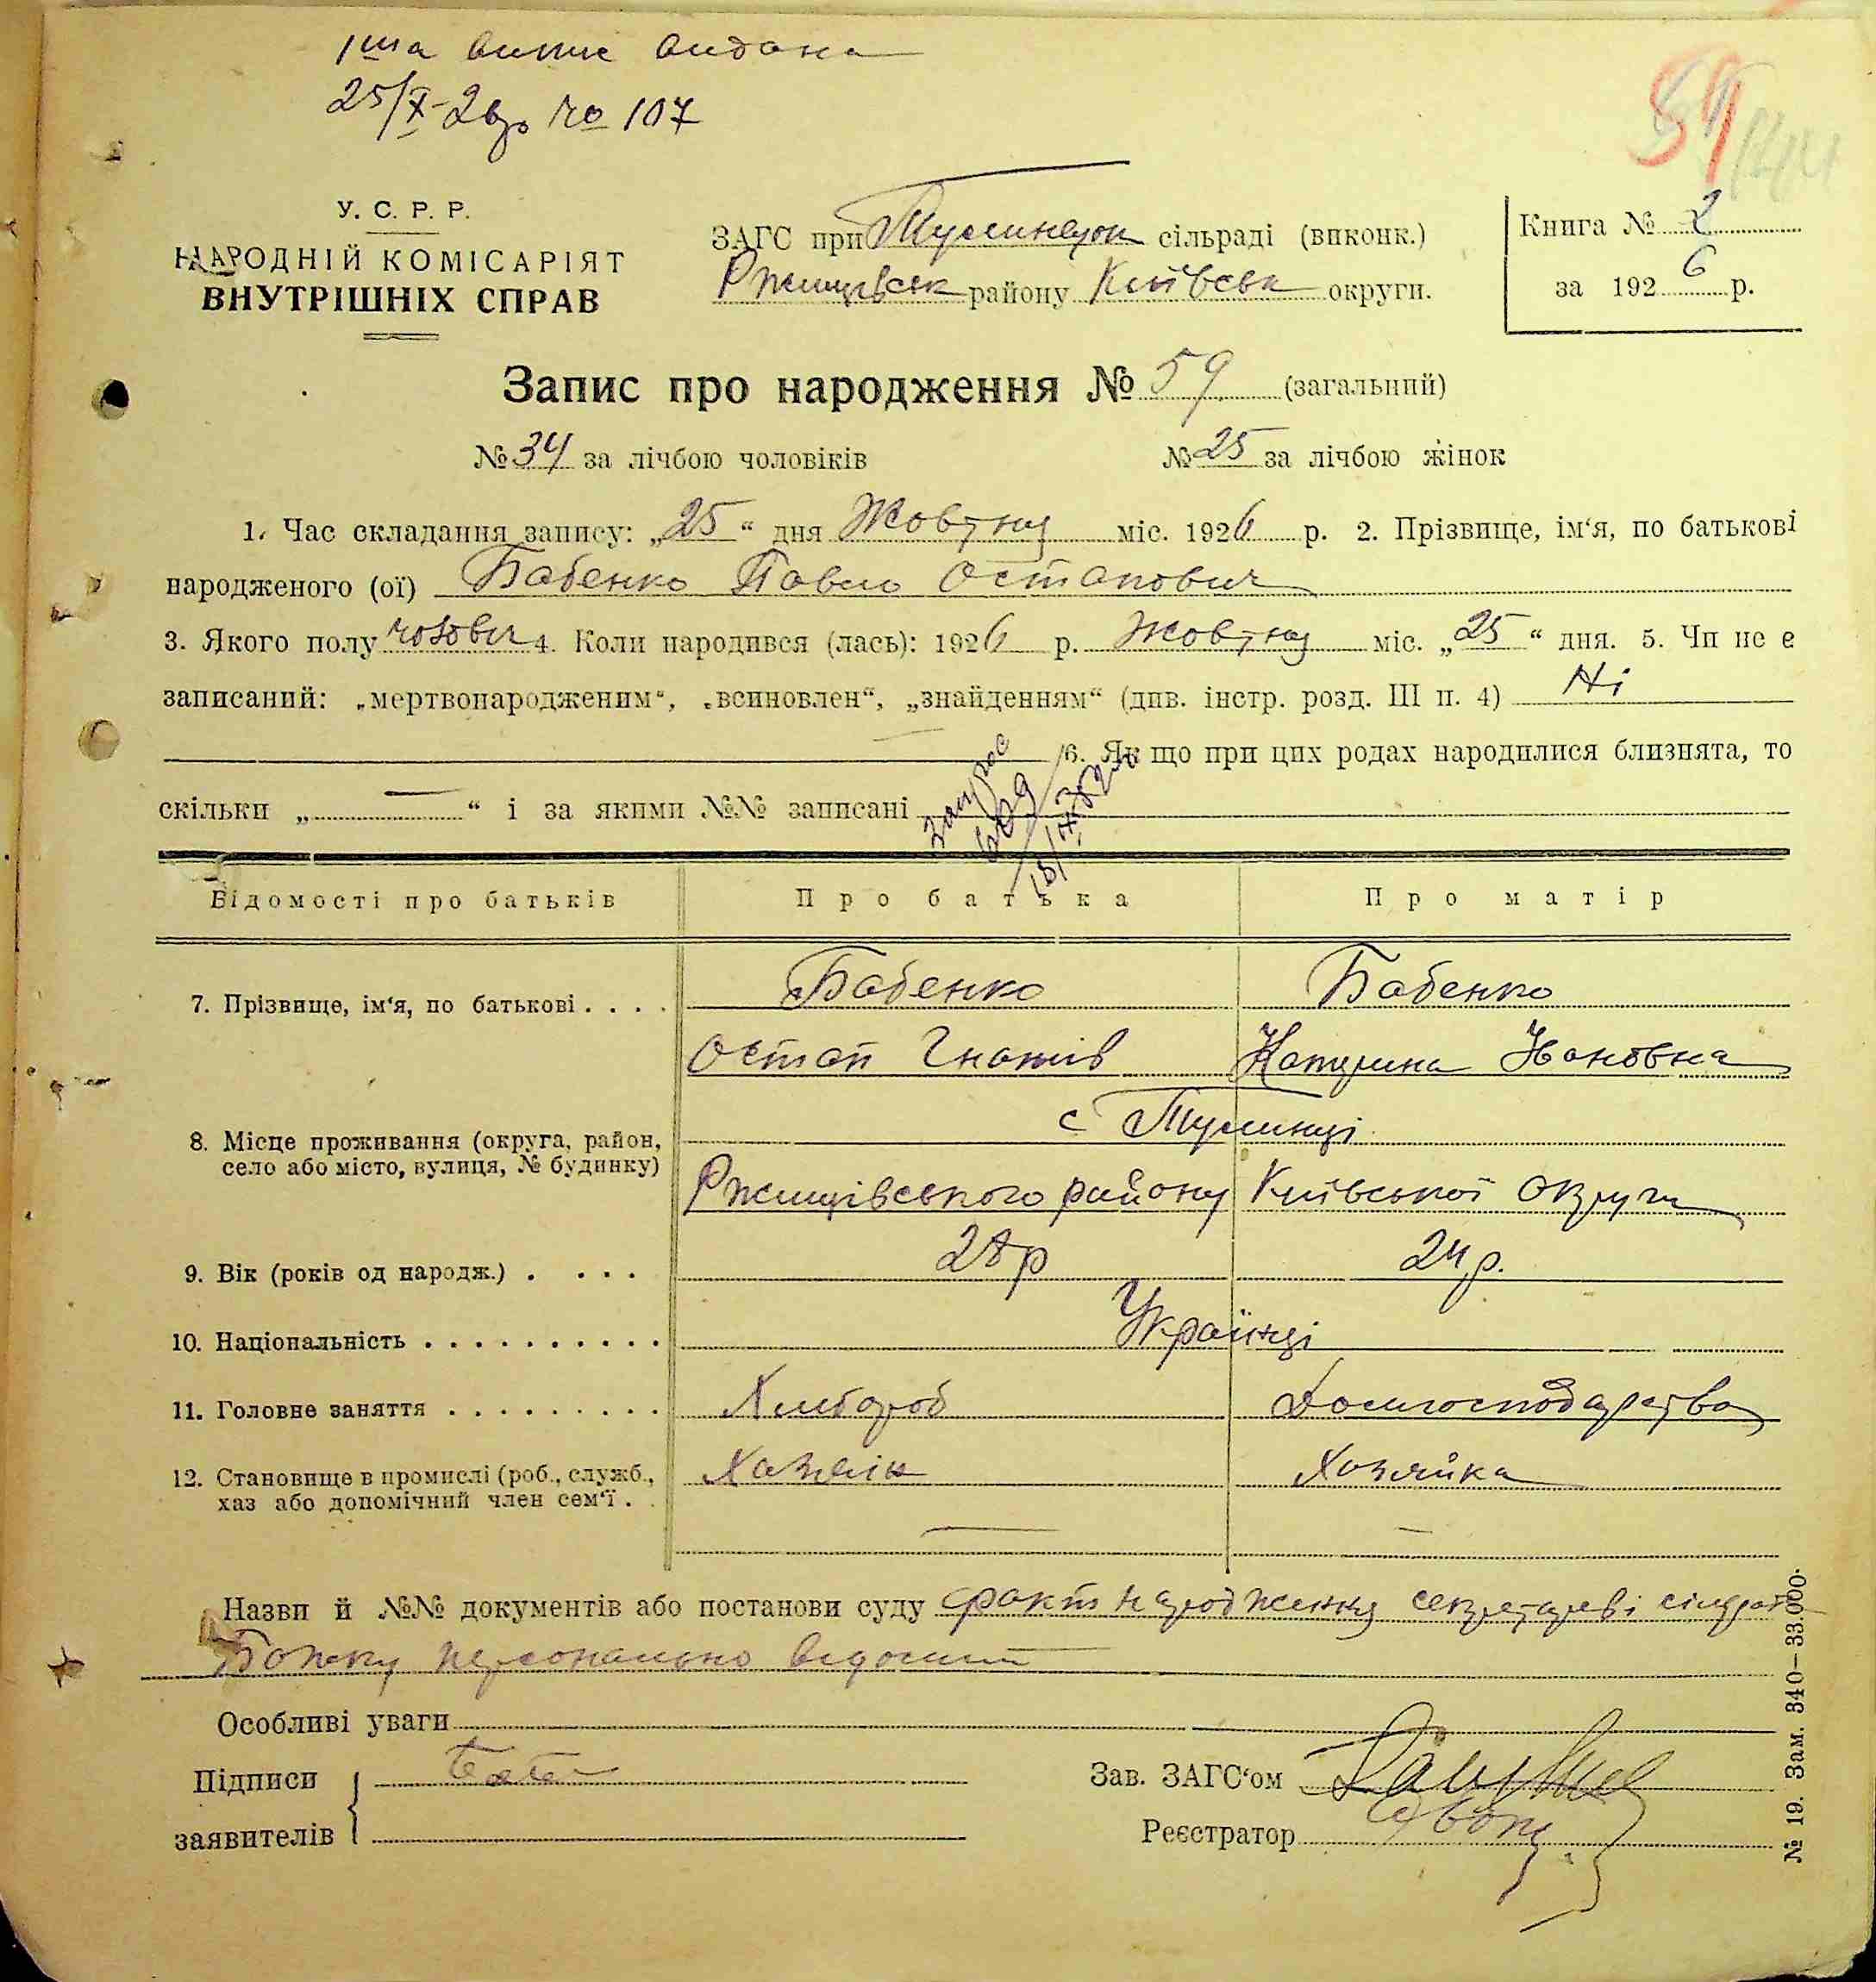 1ша випис видана
25/X-26р. № 107
59
У. С. Р. Р.
НАРОДНІЙ КОМІСАРІЯТ
ВНУТРІШНІХ СПРАВ
ЗАГС при сільраді (виконк.)
Ржищівськ району Київськ округи.
Книга № 2
за 1926 р.
Запис про народження № 59 (загальний)
№ 34 за лічбою чоловіків № 25 за лічбою жінок
1. Час складання запису: „25“ дня Жовтня міс. 1926 р. 2. Прізвище, ім'я, по батькові
народженого (ої) Бабенко Павло Остапович
3. Якого полу чолович 4. Коли народився (лась): 1926 р. Жовтня міс. „25“ дня. 5. Чи не є
записаний: „мертвонародженим“, „всиновлен“, „знайденням“ (див. інстр. розд. III п. 4) Ні
6. Як що при цих родах народилися близнята, то
скільки „—“ і за якими №№ записані
Запрос
Відомості про батьків Про батька Про матір
7. Прізвище, ім'я, по батькові . . . . Бабенко Бабенко
Остап Гнатів Катерина Івановна
с Тулинці
8. Місце проживання (округа, район,
село або місто, вулиця, № будинку)
Ржищівського району Київської округи
9. Вік (років од народж.) . . . . 28 р 24 р.
10. Національність . . . . . . . . . . Українці
11. Головне заняття . . . . . . . . . Хлібороб Домогосподарства
12. Становище в промислі (роб., служб., Хазяїн Хазяйка
хаз або допомічний член сем'ї . .
Назви й №№ документів або постанови суду факт народження секретареві сільради
персонально відомий
Особливі уваги
Підписи
заявителів
Зав. ЗАГС'ом
Реєстратор
№ 19. Зам. 340—33.000.